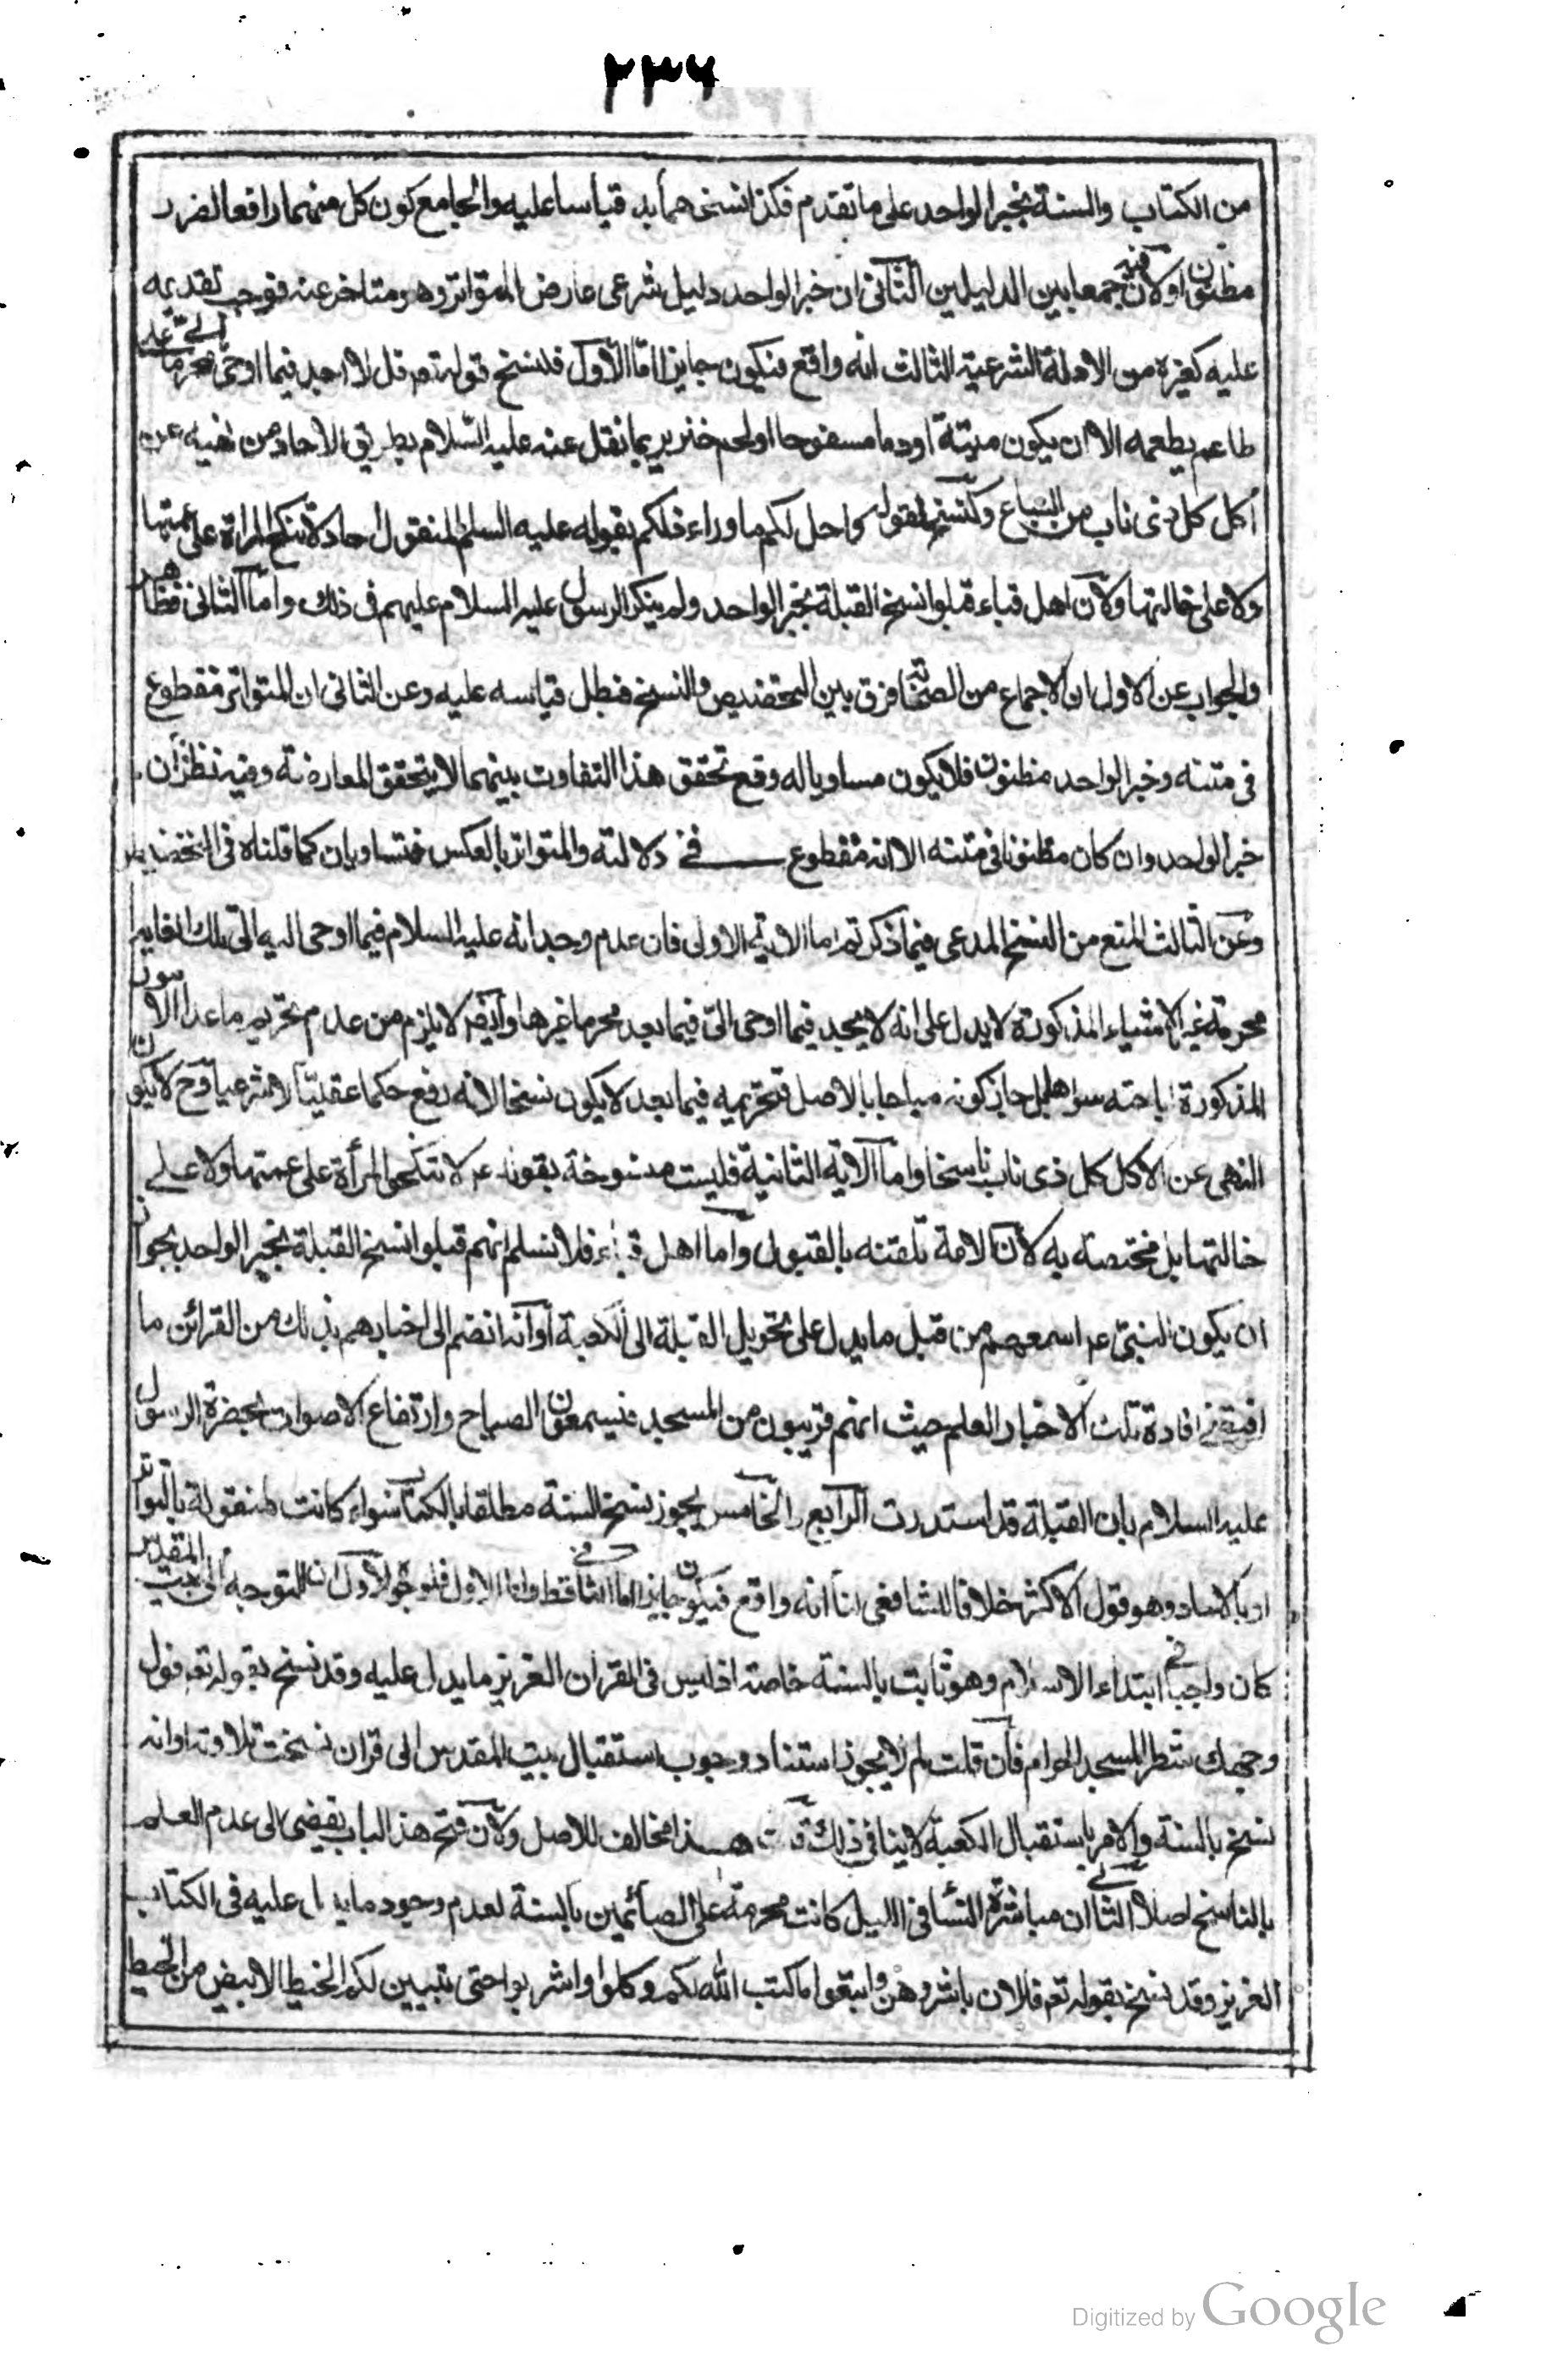 ٢٣٦
من الكتاب والسنة بخبر الواحد على ما تقدم فكذا نسخهما به قياسا عليه والجامع كون كل منهما رافعا لضرر
مظنون ولان فيه جمعا بين الدليلين الثاني ان خبر الواحد دليل شرعى عارض المتواتر وهو متاخر عنه فوجب تقديمه
عليه كغيره من الادلة الشرعية الثالث انه واقع فيكون جايزا اما الاول فلنسخ قوله تعم قل لا اجد فيما اوحى الي محرما على
طاعم يطعمه الا ان يكون ميتة او دما مسفوحا او لحم خنزير بما نقل عنه عليه السلام بطريق الاحاد من نهيه عن
اكل كل ذى ناب من السباع ولنسخ قوله واحل لكم ما وراء ذلكم بقوله عليه السلم المنقول احادا لا تنكح المراة على عمتها
ولا على خالتها ولان اهل قباء قبلوا نسخ القبلة بخبر الواحد ولم ينكر الرسول عليه السلام عليهم فى ذلك واما الثانى فظاهر
والجواب عن الاول ان الاجماع من الصحابة فرق بين التخصيص والنسخ فبطل قياسه عليه وعن الثانى ان المتواتر مقطوع
فى متنه وخبر الواحد مظنون فلا يكون مساويا له ومع تحقق هذا التفاوت بينهما لا يتحقق المعارضة وفيه نظر لان
خبر الواحد وان كان مظنونا فى متنه الا انه مقطوع في دلالته والمتواتر بالعكس فتساويان كما قلناه فى التخصيص
وعن الثالث المنع من النسخ المدعى فيما ذكرتم اما الاية الاولى فان عدم وجدانه عليه السلام فيما اوحى اليه الى تلك الغاية
محرمة غير الاشياء المذكورة لا يدل على انه لا يجد فيما اوحى الىّ فيما بعد محرما غيرها وايضا لا يلزم من عدم تحريم ما عدا الامور
المذكورة اباحته سواها بل جاز كونه مباحا بالاصل فتحريمه فيما بعد لا يكون نسخا لانه رفع حكما عقليا لا شرعيا وح لا يكون
النهى عن الاكل كل ذى ناب ناسخا واما الاية الثانية فليست منسوخة بقوله عم لا تنكح المرأة على عمتها ولا على
خالتها بل مختصة به لان الامة تلقته بالقبول واما اهل قباء فلا نسلم انهم قبلوا نسخ القبلة بخبر الواحد بجواز
ان يكون النبى عم اسمعهم من قبل ما يدل على تحويل القبلة الى الكعبة او انه انضم الى اخبارهم بذلك من القرائن ما
افتضى افادة تلك الاخبار العلم حيث انهم قريبون من المسجد فيسمعون الصياح وارتفاع الاصوات بحضرة الرسول
عليه السلام بان القبلة قد استدرت الرابع الخامس يجوز نسخ السنة مطلقا بالكتاب سواء كانت منقولة بالتواتر
او بالاحاد وهو قول الاكثر خلافا للشافعى لنا انه واقع فيكون جايزا اما الثاني فقط واما الاول فلوجوه الاول ان التوجه الى بيت المقدس
كان واجبا في ابتداء الاسلام وهو ثابت بالسنة خاصة اذ ليس فى القران العزيز ما يدل عليه وقد نسخ بقوله تعم فول
وجهك شطر المسجد الحرام فان قلت لم لا يجوز استناد وجوب استقبال بيت المقدس الى قران نسخت تلاوته او انه
نسخ بالسنة والامر باستقبال الكعبة لا ينافى ذلك قلت هذا مخالف للاصل ولان فتح هذا الباب يفضى الى عدم العلم
بالناسخ اصلا الثاني ان مباشرة النساء فى الليل كانت محرمة على الصائمين بالسنة لعدم وجود ما يدل عليه فى الكتاب
العزيز وقد نسخ بقوله تعم فالان باشروهن وابتغوا ما كتب الله لكم وكلوا واشربوا حتى يتبين لكم الخيط الابيض من الخيط
Digitized by Google